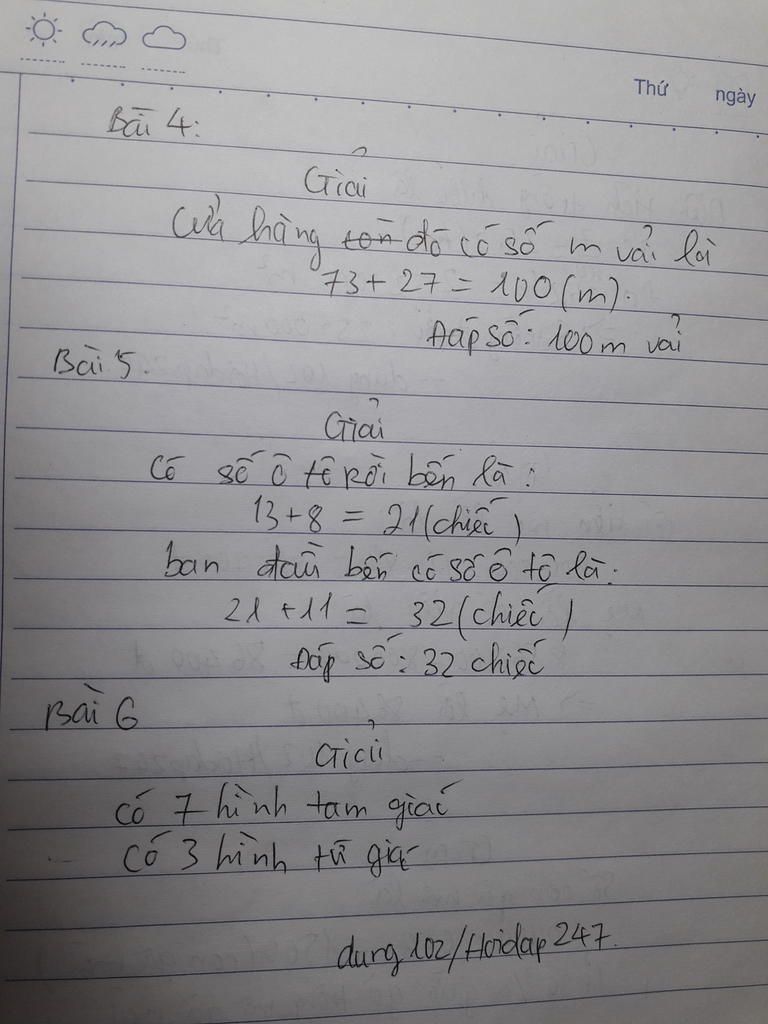 Thứ ngày
Bài 4:
Giải
Cửa hàng tồn đó có số m vải là
73 + 27 = 100 (m).
Đáp số: 100m vải
Bài 5.
Giải
Có số ô tô rời bến là:
13 + 8 = 21 (chiếc)
ban đầu bến có số ô tô là:
21 + 11 = 32 (chiếc)
Đáp số: 32 chiếc
Bài 6
Giải
có 7 hình tam giác
có 3 hình tứ giác
dung102/Hoidap247.